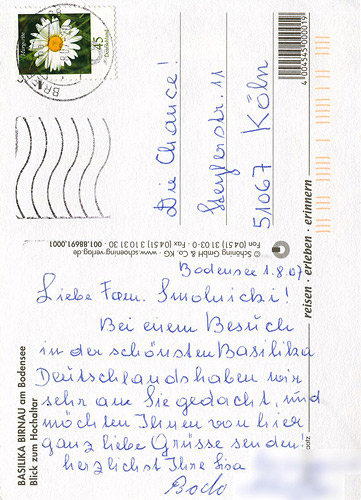 Margerite
45
Deutschland
Die Chance!
Steylerstr. 11
51067 Köln
4 004545 000019
reisen · erleben · erinnern
© Schöning GmbH & Co. KG · www.schoening-verlag.de
Fon (04 51) 31 03-0 · Fax (04 51) 3 10 31 30 · 001.88691.0001
BASILIKA BIRNAU am Bodensee
Blick zum Hochaltar
Bodensee 1.8.07
Liebe Fam. Smolnicki!
Bei einem Besuch
in der schönsten Basilika
Deutschlands haben wir
sehr an Sie gedacht, und
möchten Ihnen von hier
ganz liebe Grüsse senden!
herzlichst Ihre Lisa
Bodo